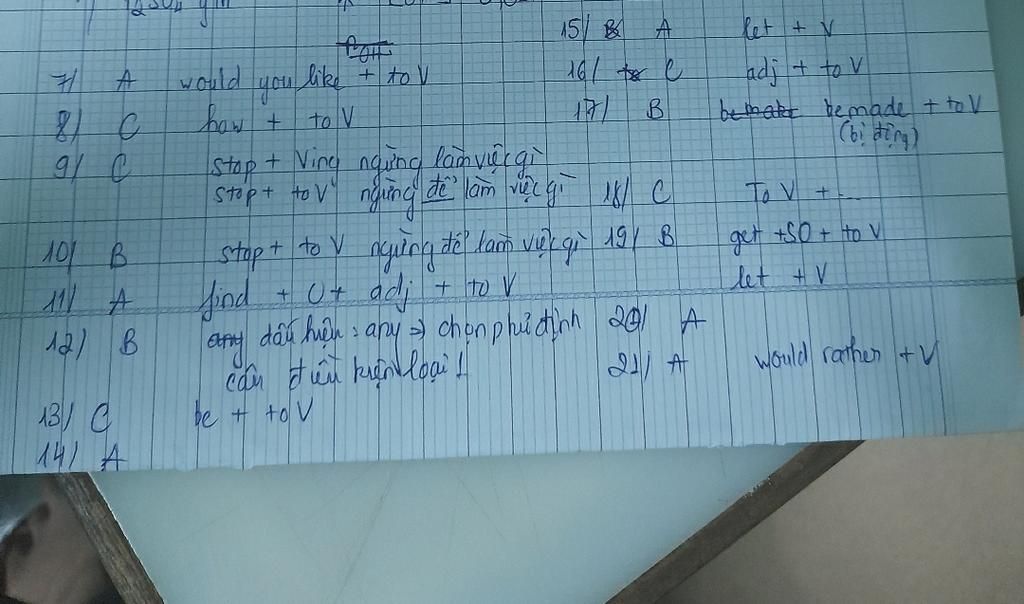 7/ A would you like + to V
8/ C how + to V
9/ C stop + Ving ngừng làm việc gì
stop + to V ngừng để làm việc gì
10/ B stop + to V ngừng để làm việc gì
11/ A find + O + adj + to V
12/ B dấu hiệu : any => chọn phủ định
câu điều kiện loại 1
13/ C be + to V
14/ A
15/ A let + V
16/ C adj + to V
17/ B be made + to V
(bị động)
18/ C To V + ...
19/ B get + SO + to V
let + V
20/ A
21/ A would rather + V